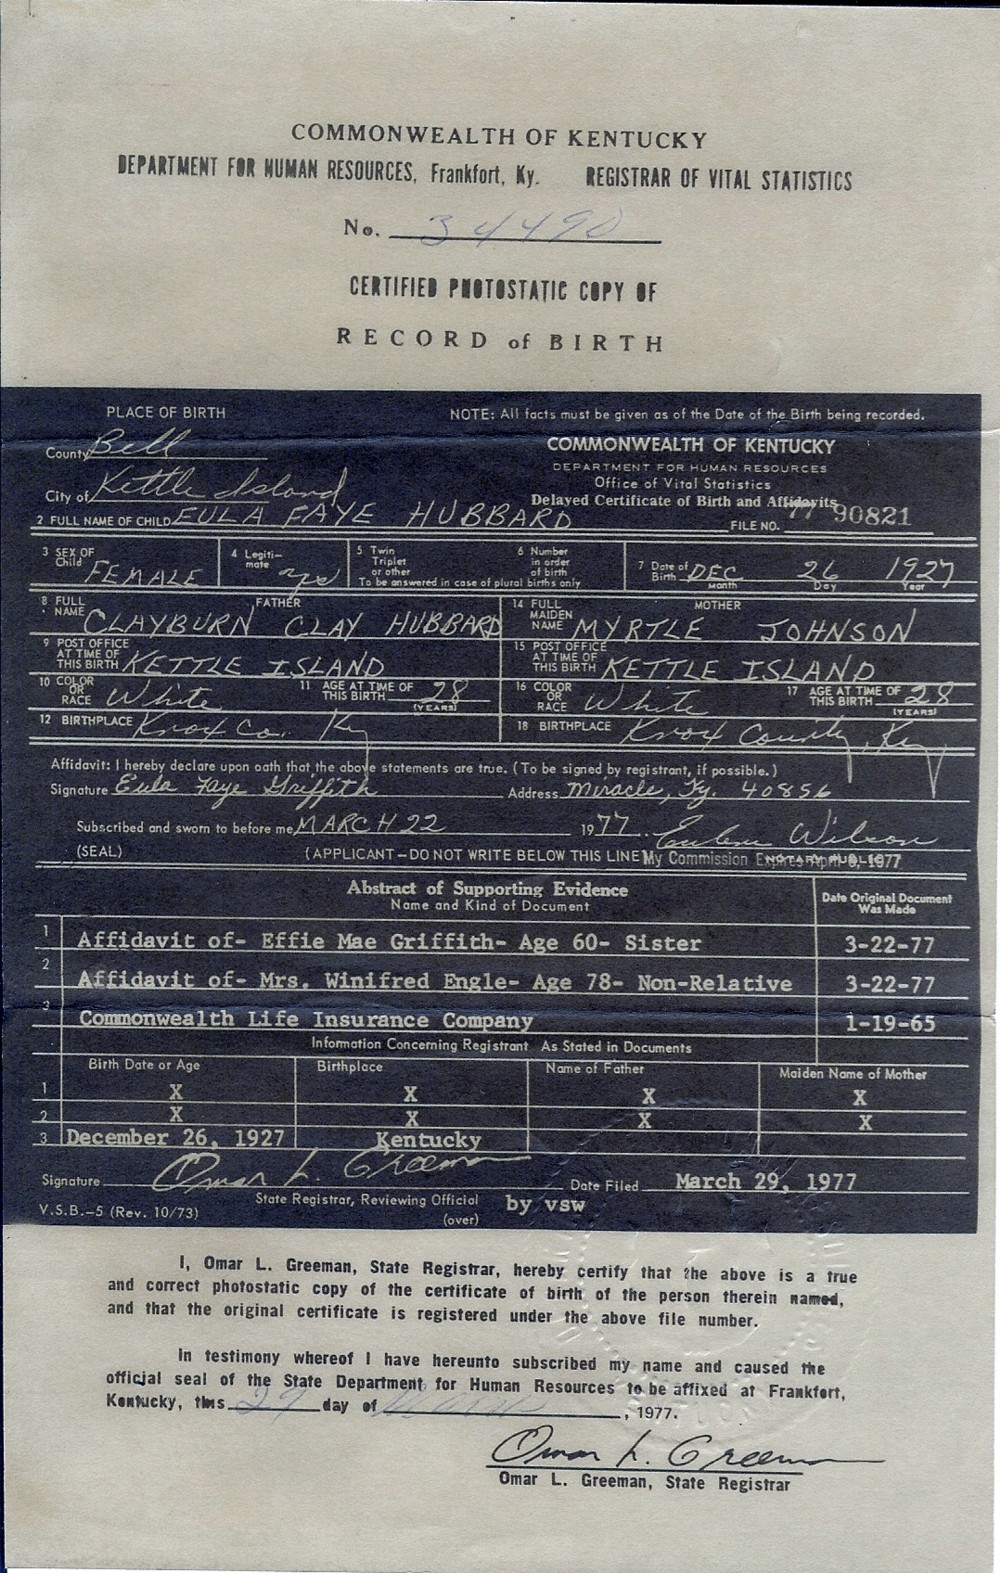 COMMONWEALTH OF KENTUCKY
DEPARTMENT FOR HUMAN RESOURCES, Frankfort, Ky. REGISTRAR OF VITAL STATISTICS
No. 34490
CERTIFIED PHOTOSTATIC COPY OF
RECORD of BIRTH
PLACE OF BIRTH NOTE: All facts must be given as of the Date of the Birth being recorded.
County Bell COMMONWEALTH OF KENTUCKY
DEPARTMENT FOR HUMAN RESOURCES
City of Kettle Island Office of Vital Statistics
Delayed Certificate of Birth and Affidavits
2 FULL NAME OF CHILD EULA FAYE HUBBARD FILE NO. 77 90821
3 SEX OF Child FEMALE 4 Legiti-mate yes 5 Twin Triplet or other 6 Number in order of birth 7 Date of Birth DEC 26 1927
To be answered in case of plural births only Month Day Year
8 FULL NAME FATHER CLAYBURN CLAY HUBBARD 14 FULL MAIDEN NAME MOTHER MYRTLE JOHNSON
9 POST OFFICE AT TIME OF THIS BIRTH KETTLE ISLAND 15 POST OFFICE AT TIME OF THIS BIRTH KETTLE ISLAND
10 COLOR OR RACE White 11 AGE AT TIME OF THIS BIRTH 28 (YEARS) 16 COLOR OR RACE White 17 AGE AT TIME OF THIS BIRTH 28 (YEARS)
12 BIRTHPLACE Knox Co. Ky 18 BIRTHPLACE Knox County, Ky
Affidavit: I hereby declare upon oath that the above statements are true. (To be signed by registrant, if possible.)
Signature Eula Faye Griffith Address Miracle, Ky. 40856
Subscribed and sworn to before me MARCH 22 1977 Wilson
(SEAL) (APPLICANT—DO NOT WRITE BELOW THIS LINE) My Commission Expires April 8, 1977 NOTARY PUBLIC
Abstract of Supporting Evidence
Name and Kind of Document Date Original Document Was Made
1 Affidavit of- Effie Mae Griffith- Age 60- Sister 3-22-77
2 Affidavit of- Mrs. Winifred Engle- Age 78- Non-Relative 3-22-77
3 Commonwealth Life Insurance Company 1-19-65
Information Concerning Registrant As Stated in Documents
Birth Date or Age Birthplace Name of Father Maiden Name of Mother
1 X X X X
2 X X X X
3 December 26, 1927 Kentucky
Signature Omar L. Greeman Date Filed March 29, 1977
State Registrar, Reviewing Official by vsw
V.S.B.—5 (Rev. 10/73) (over)
I, Omar L. Greeman, State Registrar, hereby certify that the above is a true
and correct photostatic copy of the certificate of birth of the person therein named,
and that the original certificate is registered under the above file number.
In testimony whereof I have hereunto subscribed my name and caused the
official seal of the State Department for Human Resources to be affixed at Frankfort,
Kentucky, this 29 day of March, 1977.
Omar L. Greeman
Omar L. Greeman, State Registrar